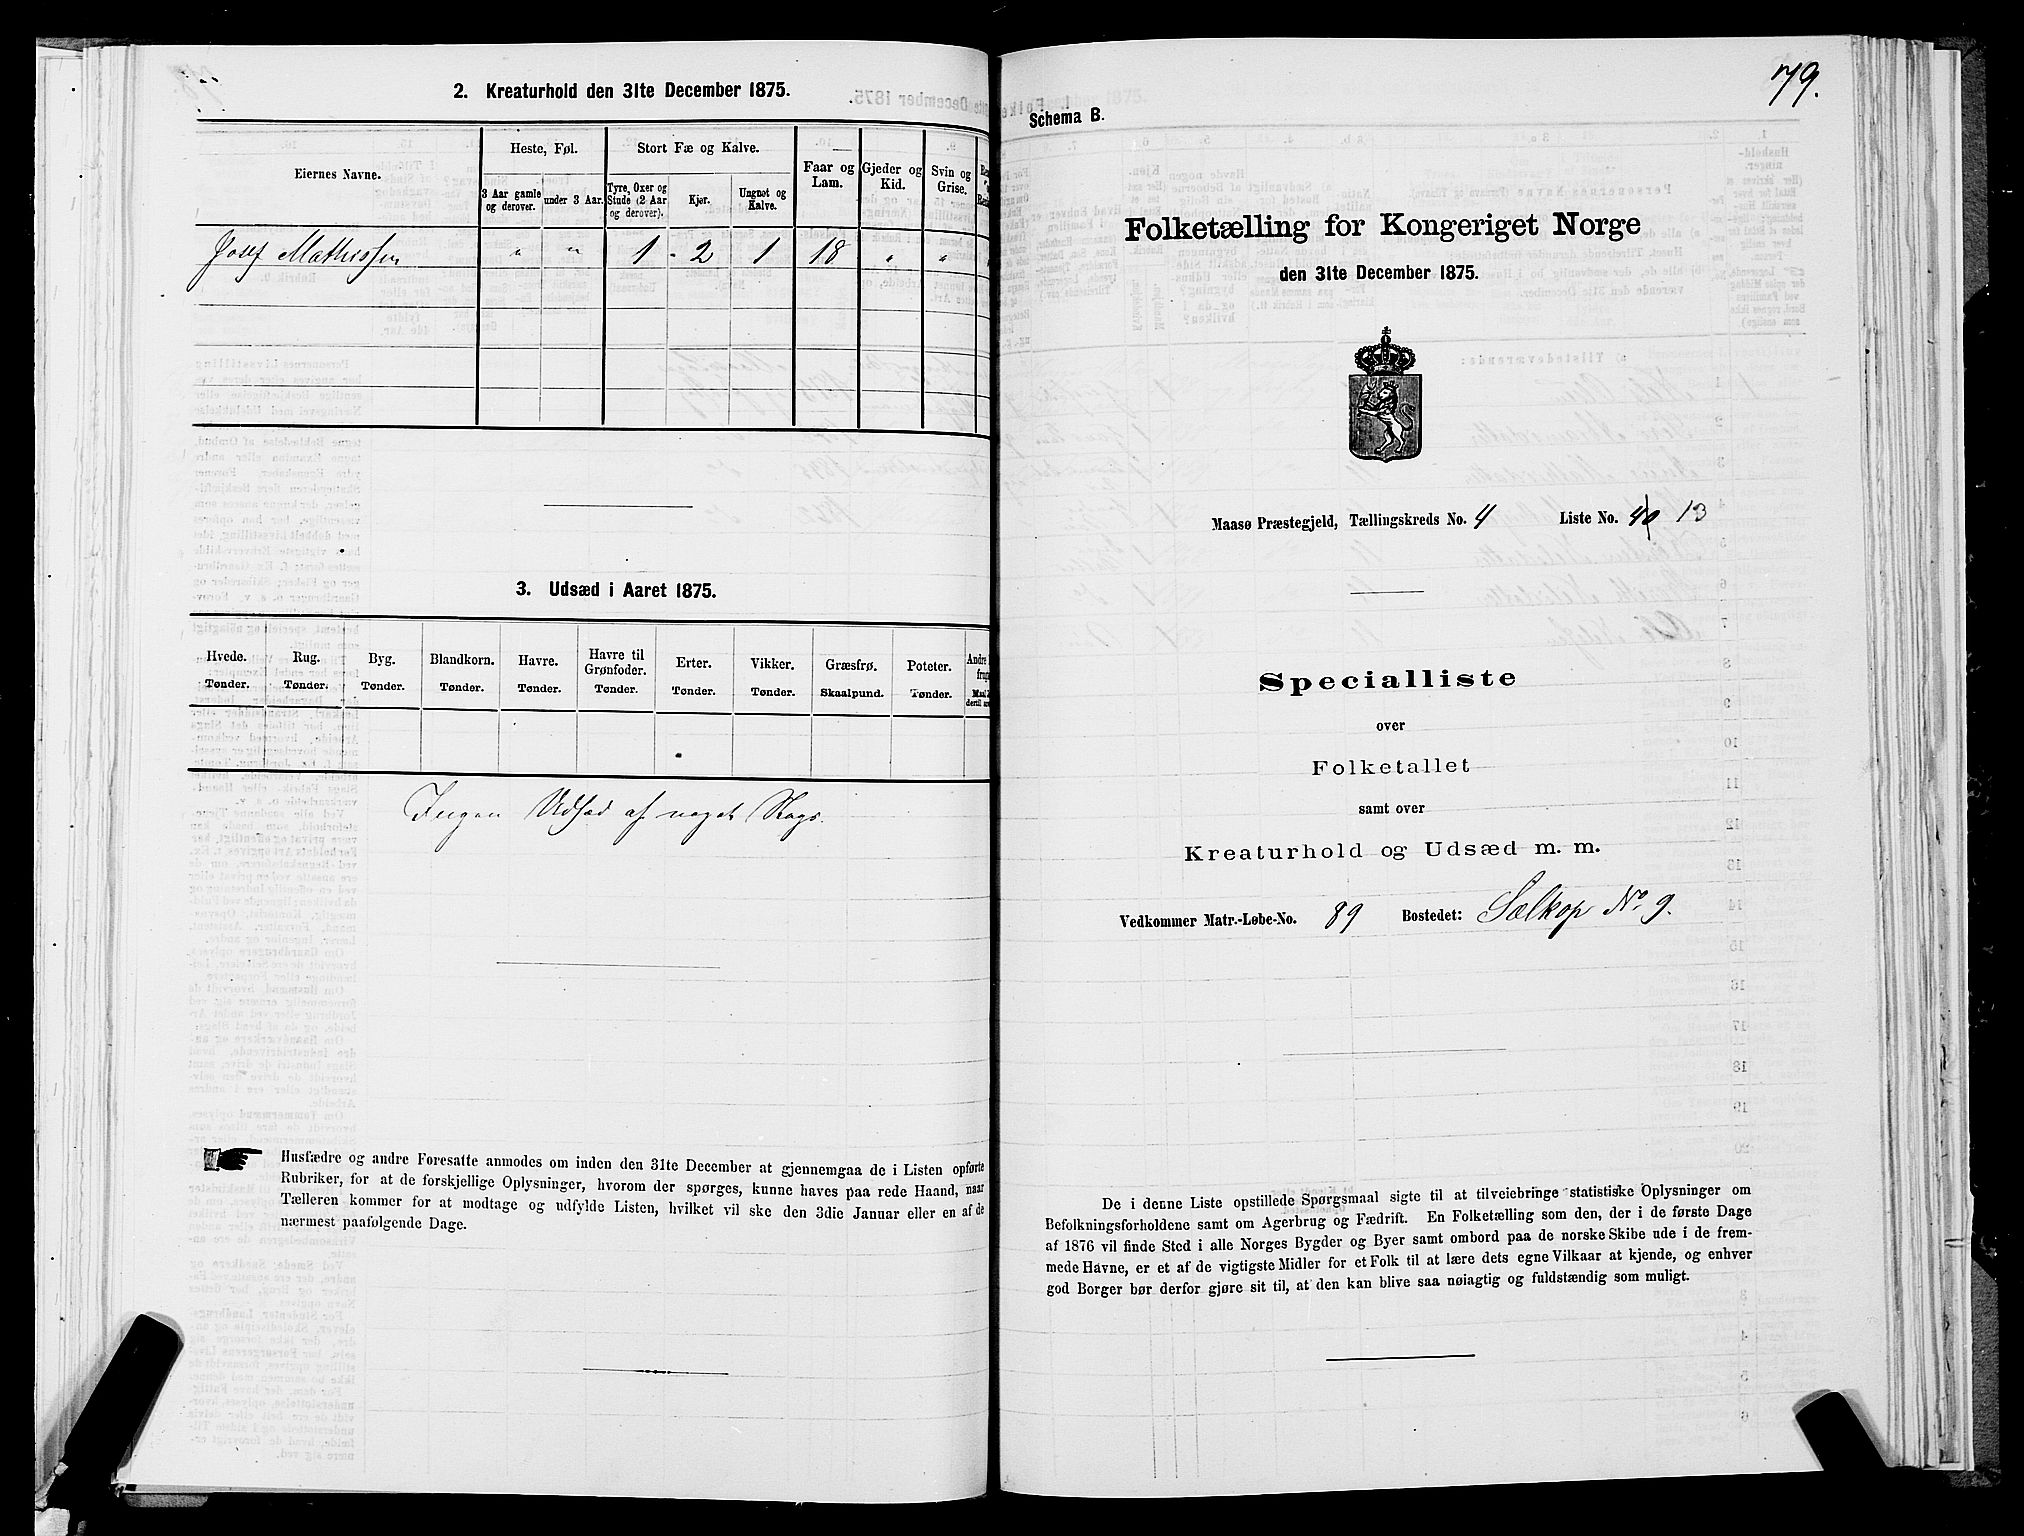 2. Kreaturhold den 31te December 1875.
Eiernes Navne.
Heste, Føl.
Stort Fæ og Kalve.
Faar og Lam.
Gjeder og Kid.
Svin og Grise.
3 Aar gamle og derover.
under 3 Aar.
Tyre, Oxer og Stude (2 Aar og derover).
Kjør.
Ungnøt og Kalve.
Josef Mathissen " " 1 - 2 1 18 " "
3. Udsæd i Aaret 1875.
Hvede. Rug. Byg. Blandkorn. Havre. Havre til Grønfoder. Erter. Vikker. Græsfrø. Poteter.
Tønder. Tønder. Tønder. Tønder. Tønder. Tønder. Tønder. Tønder. Skaalpund. Tønder.
Ingen Udsæd af noget Slags.
Husfædre og andre Foresatte anmodes om inden den 31te December at gjennemgaa de i Listen opførte
Rubriker, for at de forskjellige Oplysninger, hvorom der spørges, kunne haves paa rede Haand, naar
Tælleren kommer for at modtage og udfylde Listen, hvilket vil ske den 3die Januar eller en af de
nærmest paafølgende Dage.
79.
Schema B.
Folketælling for Kongeriget Norge
den 31te December 1875.
Maasø Præstegjeld, Tællingskreds No. 4 Liste No. 40 13
Specialliste
over
Folketallet
samt over
Kreaturhold og Udsæd m. m.
Vedkommer Matr.-Løbe-No. 89 Bostedet: Sælkop No 9.
De i denne Liste opstillede Spørgsmaal sigte til at tilveiebringe statistiske Oplysninger om
Befolkningsforholdene samt om Agerbrug og Fædrift. En Folketælling som den, der i de første Dage
af 1876 vil finde Sted i alle Norges Bygder og Byer samt ombord paa de norske Skibe ude i de frem-
mede Havne, er et af de vigtigste Midler for et Folk til at lære dets egne Vilkaar at kjende, og enhver
god Borger bør derfor gjøre sit til, at den kan blive saa nøiagtig og fuldstændig som muligt.